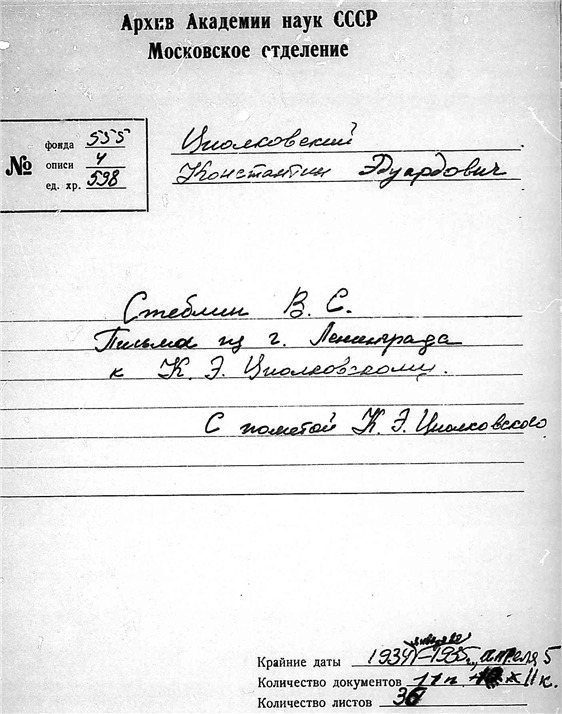 Архив Академии наук СССР
Московское отделение
№
фонда 555
описи 4
ед. хр. 598
Циолковский
Константин Эдуардович
Стеблин В. С.
Письма из г. Ленинграда
к К. Э. Циолковскому.
С пометой К. Э. Циолковского
Крайние даты 1934 – 1935, апреля 5
Количество документов 11 к.
Количество листов 36